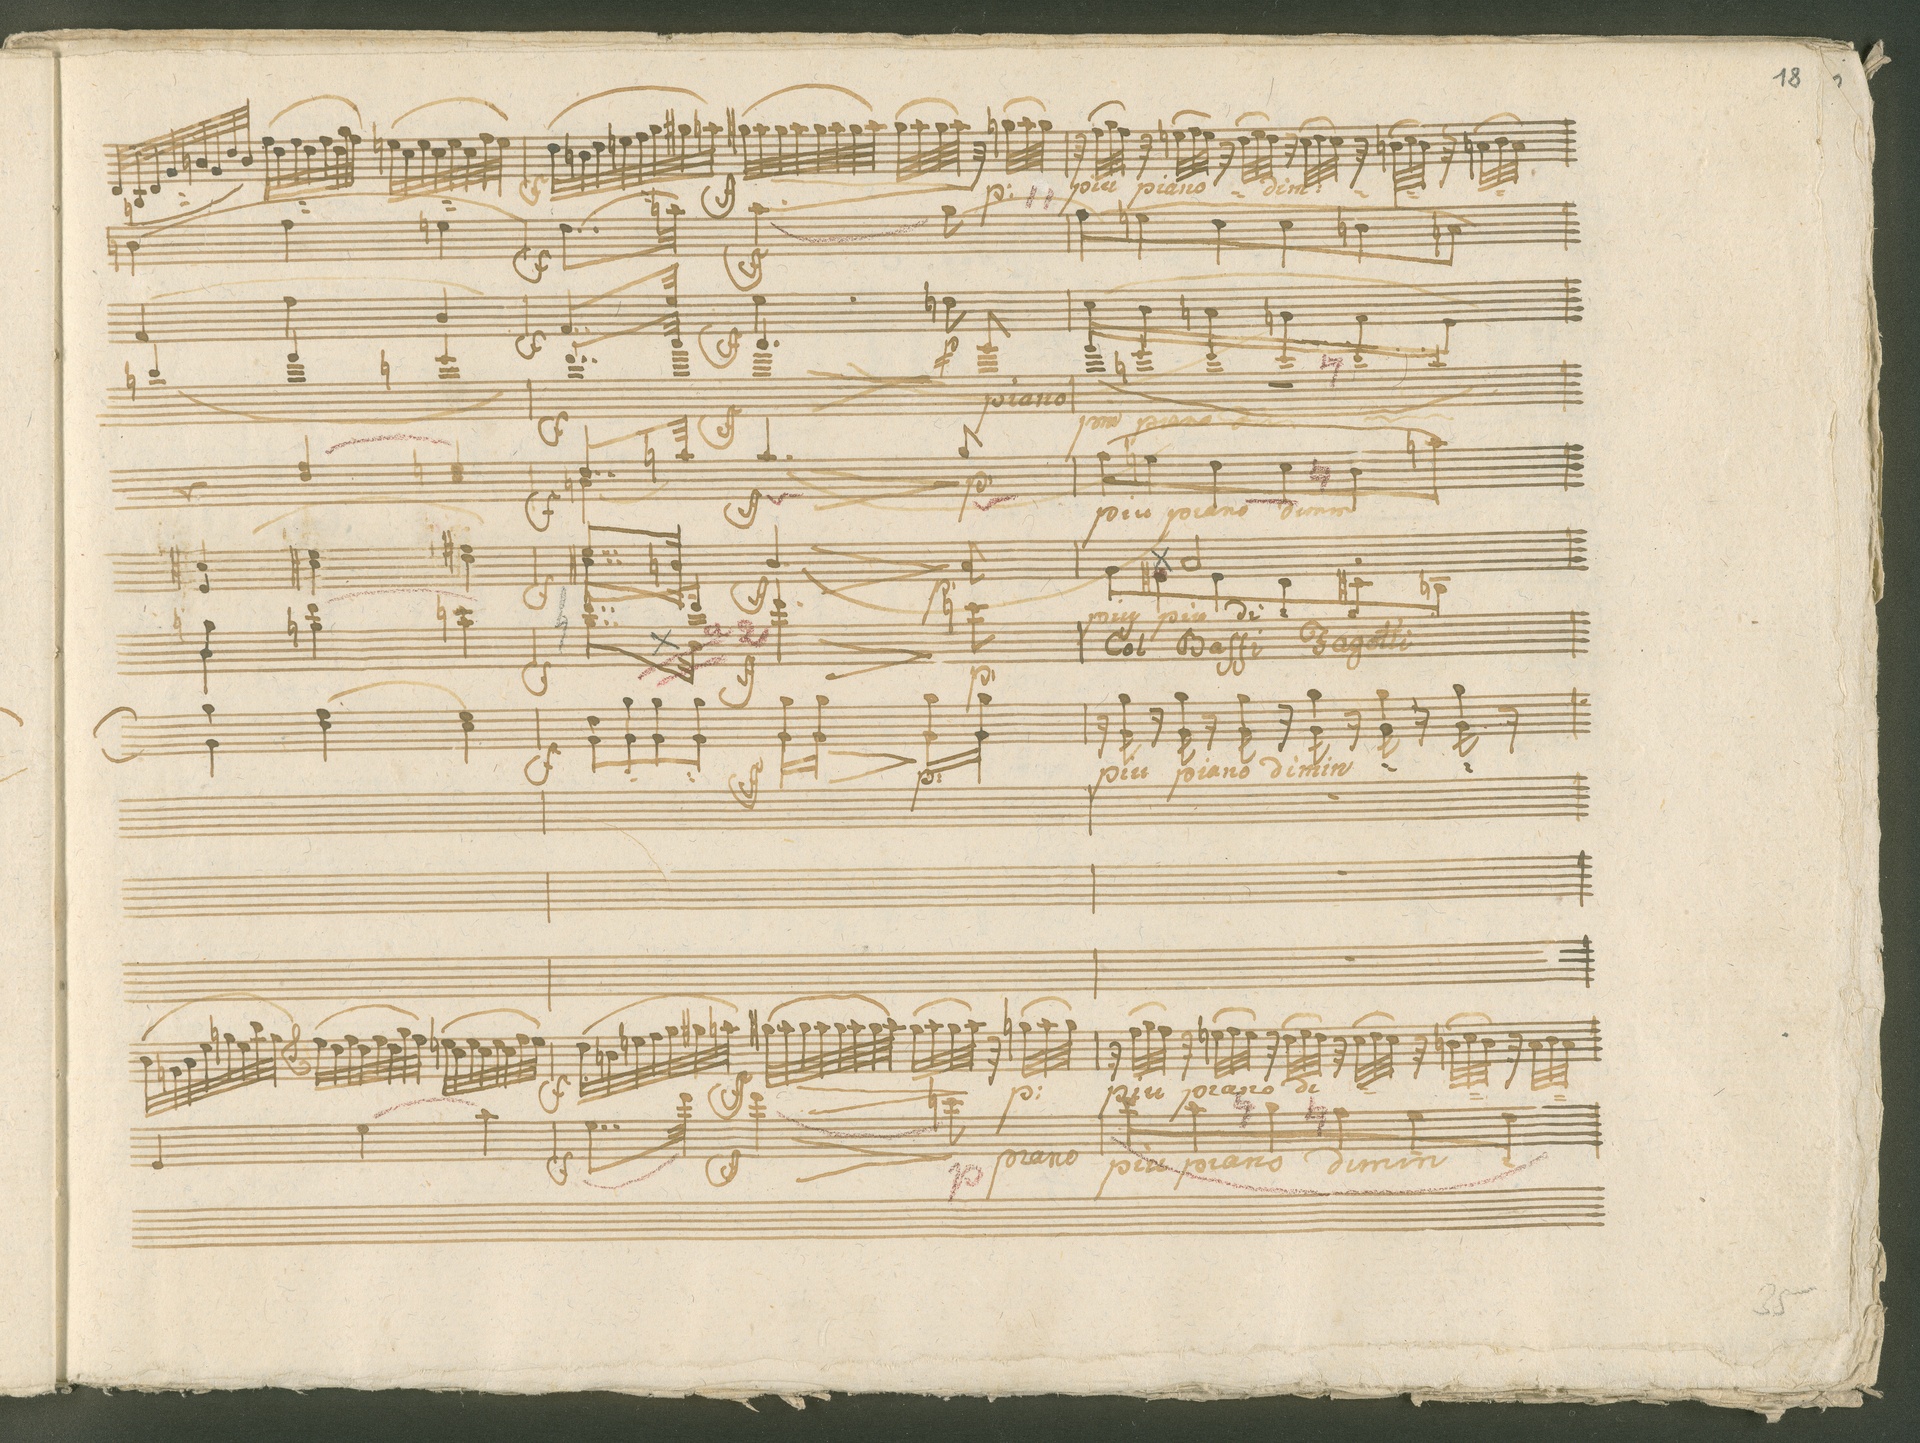 18
p: piu piano dim:
piano
p: piu piano dimin
p: piu piu di
Col Bassi Fagotti
a 2
p:
p: piu piano dimin
p: piu piano di
p piano piu piano dimin
35